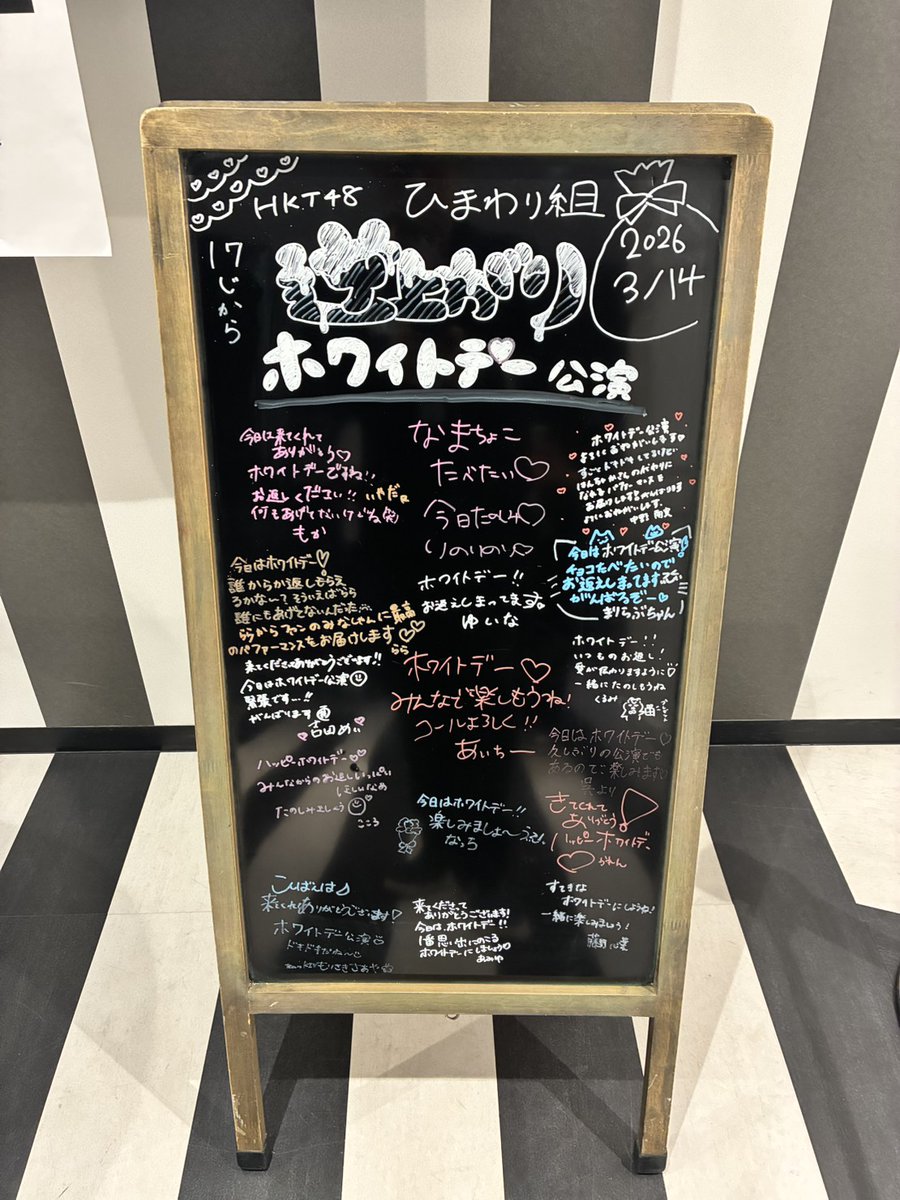 HKT48
ひまわり組
2026
3/14
17じから
逆上がり
ホワイトデー公演
今日は来てくれて
ありがとう♡
ホワイトデーですね!!
お返しください!! いやだ
何もあげてないけどね(笑)
もか
今日はホワイトデー♡
誰からか返しもらえ
るかな〜?そういえばらら
誰にもあげてないんだた…
ららからファンのみなさんに最高
のパフォーマンスをお届けします♡♡
らら
来てくださりありがとうございます!!
今日はホワイトデー公演☺
緊張です…!!
がんばります
吉田めい
ハッピーホワイトデー♡♡
みんなからのお返しいっぱい
ほしいなあ
たのしみましょう☺♡
こころ
こんばんは♪
来てくれてありがとうございます♡
ホワイトデー公演
なまちょこ
たべたい♡
今日たのしも♡
りのりの
ホワイトデー!!
お返えしまってます。
ゆいな
ホワイトデー♡
みんなで楽しもうね!
コールよろしく!!
あいちー
今日はホワイトデー!!
楽しみましょ〜
なっち
来てくださって
ありがとうございます!
今日は、ホワイトデー!!
1番思い出にのこる
ホワイトデーにしましょう♡
ホワイトデー公演
よろしくおねがいします♡
すごくドキドキしてるけど
お届けします
今日はホワイトデー公演!
チョコたべたいので
お返えしまってます
がんばるぞー♡
まりちぶちゃん
ホワイトデー!!
いつものお返し!
愛が伝わりますように♡
一緒にたのしもうね
くるみ
今日は、ホワイトデー♡
久しぶりの公演でも
あるので楽しみます
きてくれて
ありがとう!
ハッピーホワイトデー
♡かれん
すてきな
ホワイトデーにしようね!
一緒に楽しみましょう!